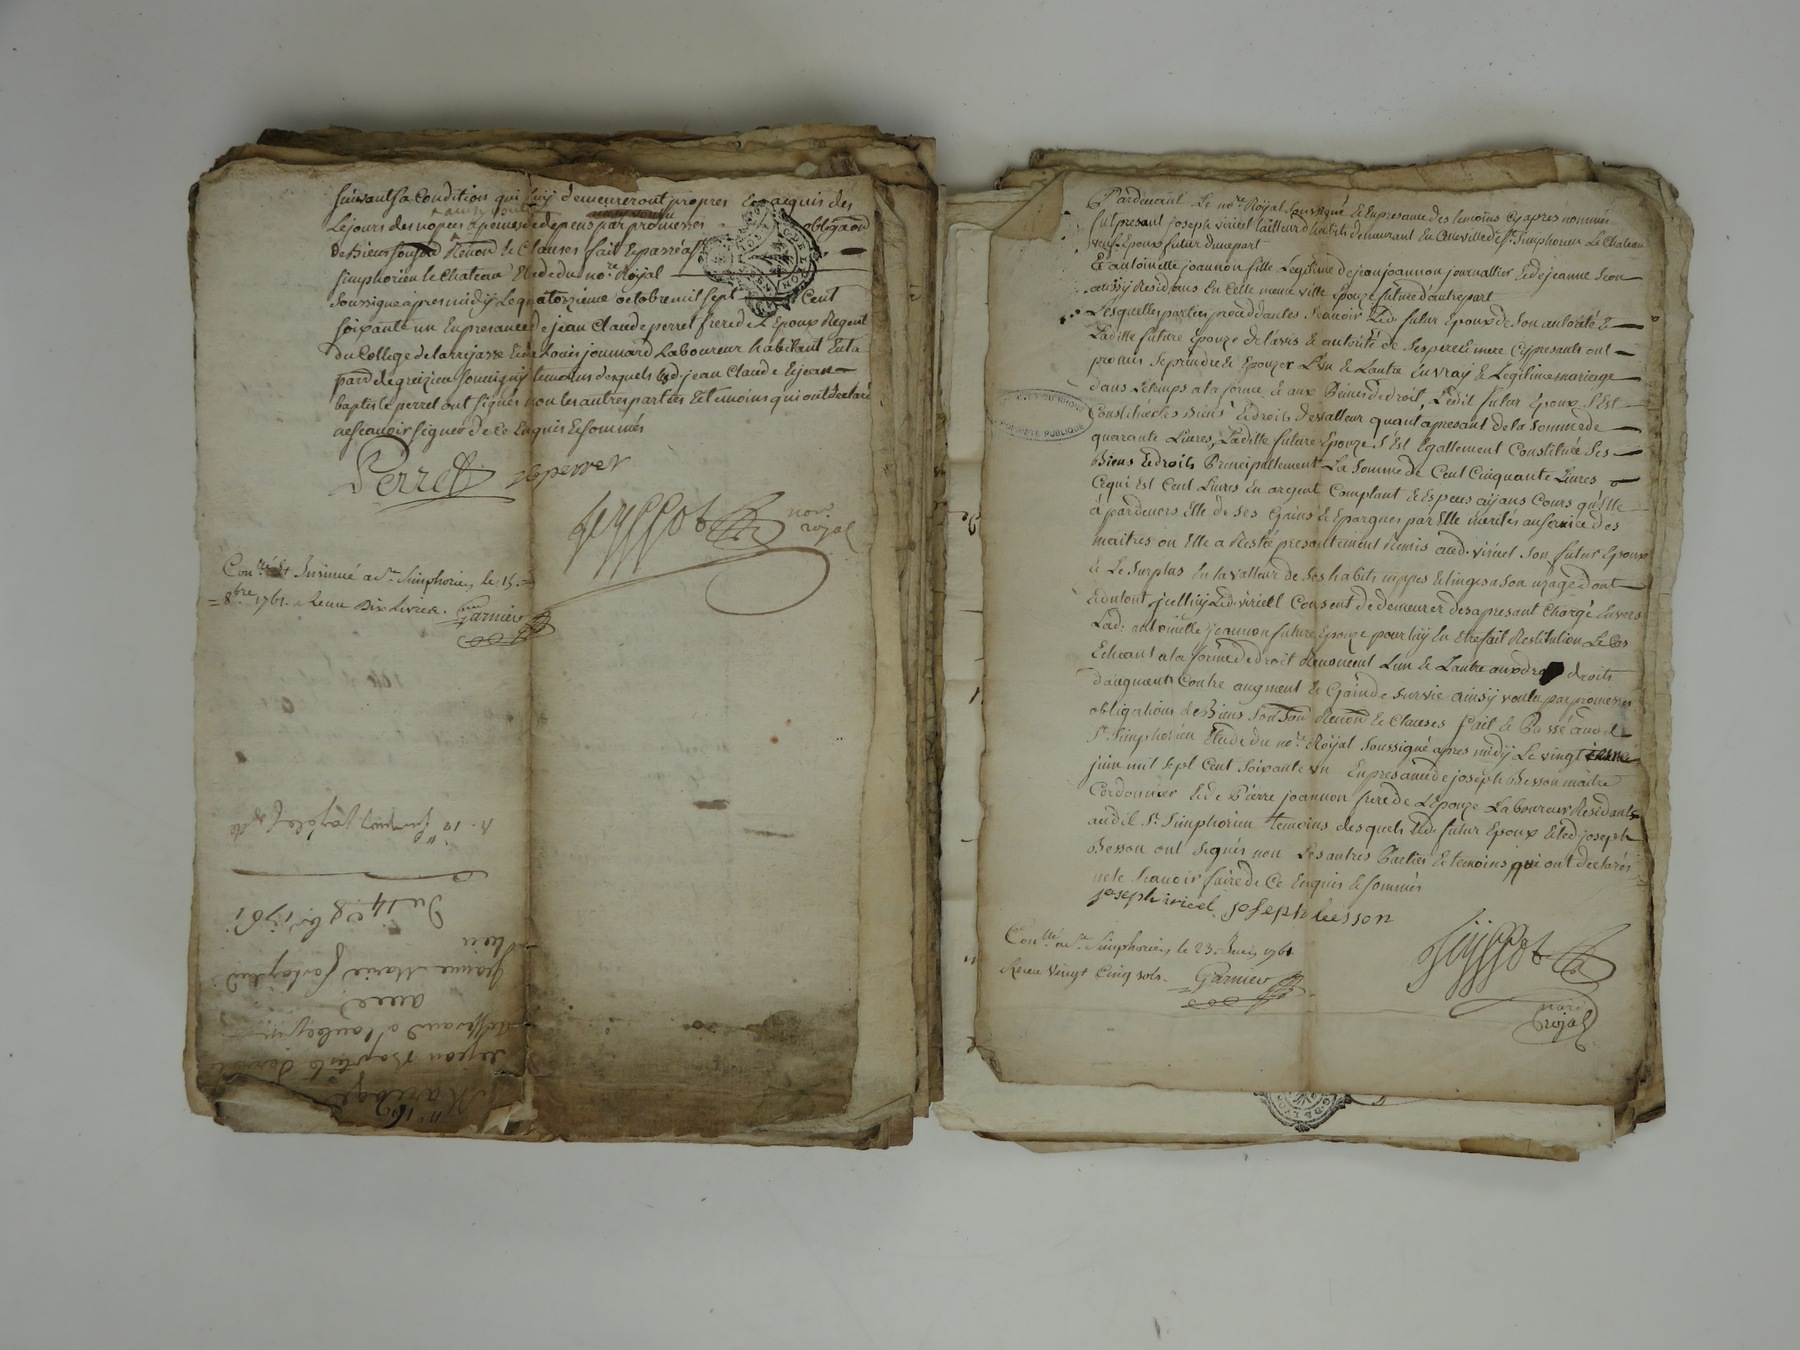 suivant sa condition qui luy demeureront propres et acquis des
le jours des nopces a peines de depens par promesses obligaôn
de Biens sousmôn Renonô et Clauses fait et passé a St
simphorien le Chateau Etude du nore Royal
soussigné apres midÿ le quatorzieme octobre mil sept Cent
soixante un En presance de jean Claude perret frere de L'Epoux Regent
du College de larrajasse et de Louis joumard Laboureur habitant En la
parr. de greizieu souvigny temoins desquels led jean Claude et jean
baptiste perret ont signés non les autres parties et temoins qui ont declaré
ne scavoir signer de ce Enquis et sommés
Perret
perret
Geyssot
nore
royal
Conllé et Insinué a St Simphorien le 15.
8bre 1761. Receu Dix Livres. Garnier
Du 14. 8bre 1761
jeanne Marie
avec
sr jean Baptiste
Mariage
n° 169
Pardevant Le nore Royal Soussigné et En presance des temoins cy apres nommés
fut present joseph viricel tailleur d'habits demeurant En Cette ville de St. Simphorien Le Chateau
veuf Epoux futur d'une part
Et antoinette joannon fille Legitime de jean joannon journallier et de jeanne
aussÿ Residans En Cette meme ville Epouze future d'autre part
Lesquelles parties proceddantes Scavoir Led. futur Epoux de Son autorité Et
Laditte future Epouze de l'avis et autorité de Ses pere et mere Cy presants ont
promis Se prendre et Epouzer L'un et Lautre En vray et Legitime mariage
dans Le temps a la forme et aux Peines de droit, Ledit futur Epoux S'Est
Constitué ses Biens et droits de valleur quant apresant de la Somme de
quarante Livres, Laditte future Epouze S'Est Egallement Constituée Ses
Biens et droits Principallement La Somme de Cent Cinquante Livres
Ce qui est Cent Livres En argent Comptant et Especes aÿans Cours qu'Elle
a pardevers Elle de Ses Gains et Epargnes par Elle merités au service des
maitres ou Elle a Resté presentement Remis aud. viricel Son futur Epoux
et Le Surplus En la valleur de Ses habits nippes et linges a Son uzage dont
Et du tout jcelluy Led. viricel Consent de demeurer des apresant Chargé Envers
Lad. antoinette joannon future Epouze pour luÿ En etre fait Restitution Le Cas
Echeant a la forme de droit Renoncent L'un et Lautre aux droits
d'augment Contre augment et Gain de Survie ainsÿ voulu par promesses
obligations de Biens Soumôn Renonô et Clauses fait et Passé audit
St. Simphorien Etude du nore Roÿal Soussigné apres midÿ Le vingt
juin mil Sept Cent Soixante un En presance de joseph Besson maitre
Cordonnier et de Pierre joannon frere de L'epouze Laboureur Residants
audit St. Simphorien temoins desquels Led. futur Epoux et led joseph
Besson ont Signés non Les autres Parties et temoins qui ont declarés
ne le Scavoir faire de Ce Enquis et sommés
joseph viricel joseph besson
Geyssot
nore
royal
Conllé a St Simphorien le 23 Juin 1761
Receu vingt Cinq sols. Garnier